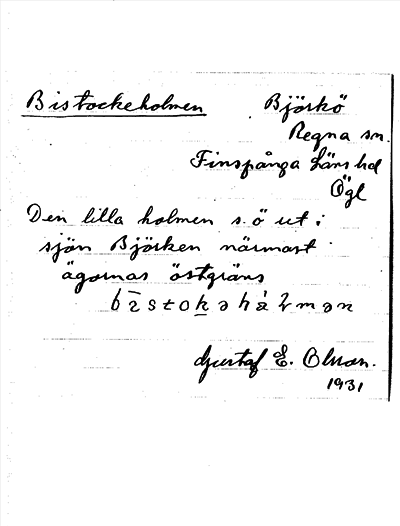 Bistockeholmen Björkö
Regna sn.
Finspånga läns hd
Ögl
Den lilla holmen s.ö ut i
sjön Björken närmast
ägornas östgräns
Gustaf E. Olson.
1931